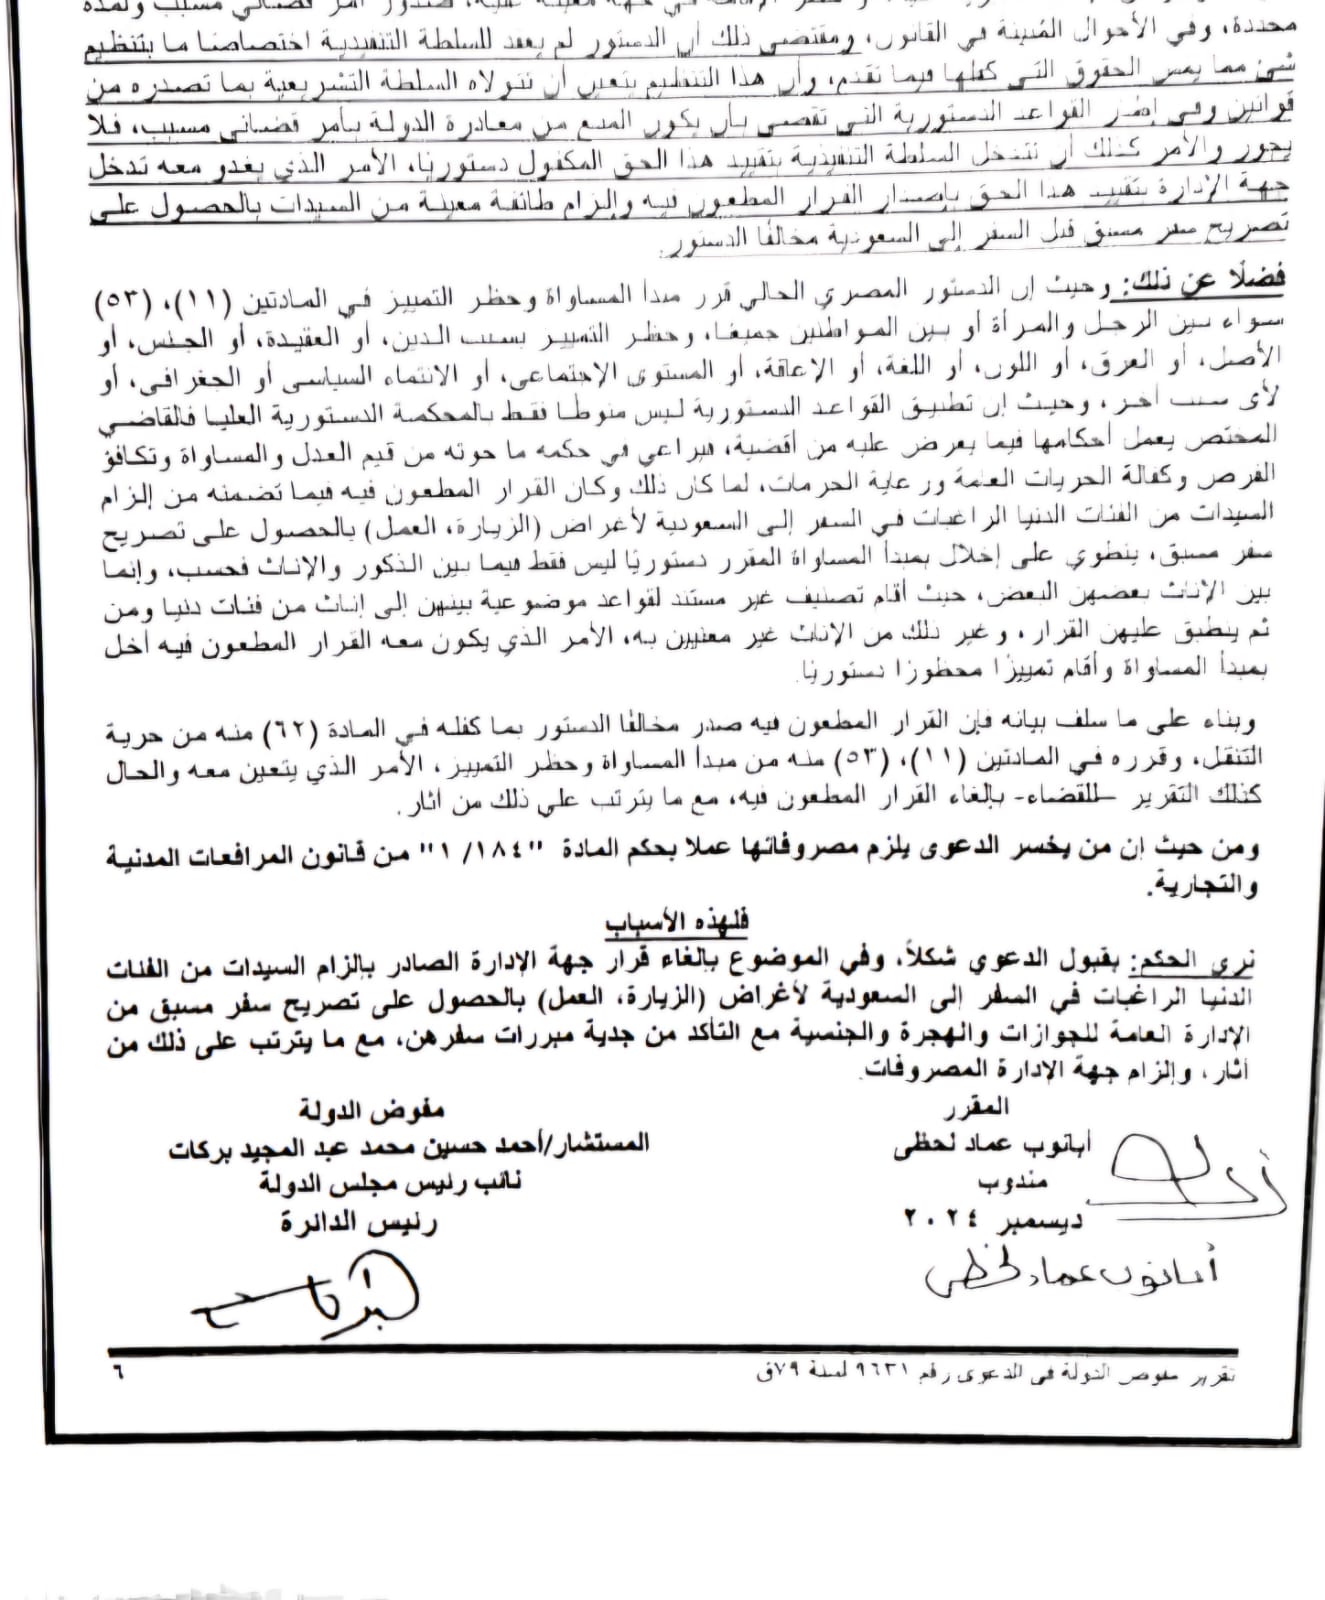 محددة، وفي الأحوال المبينة في القانون، ومقتضى ذلك أن الدستور لم يعقد للسلطة التنفيذية اختصاصا ما بتنظيم
شئ مما يمس الحقوق التي كفلها فيما تقدم، وأن هذا التنظيم يتعين أن تتولاه السلطة التشريعية بما تصدره من
قوانين وفي إطار القواعد الدستورية التي تقضي بأن يكون المنع من مغادرة الدولة بأمر قضائي مسبب، فلا
يجوز والأمر كذلك أن تتدخل السلطة التنفيذية بتقييد هذا الحق المكفول دستوريًا، الأمر الذي يغدو معه تدخل
جهة الإدارة بتقييد هذا الحق بإصدار القرار المطعون فيه وإلزام طائفة معينة من السيدات بالحصول على
تصريح سفر مسبق قبل السفر إلى السعودية مخالفًا الدستور.
فضلًا عن ذلك: وحيث إن الدستور المصري الحالي قرر مبدأ المساواة وحظر التمييز في المادتين (١١)، (٥٣)
سواء بين الرجل والمرأة أو بين المواطنين جميعًا، وحظر التمييز بسبب الدين، أو العقيدة، أو الجنس، أو
الأصل، أو العرق، أو اللون، أو اللغة، أو الإعاقة، أو المستوى الإجتماعى، أو الانتماء السياسى أو الجغرافى، أو
لأى سبب أخر، وحيث إن تطبيق القواعد الدستورية ليس منوطًا فقط بالمحكمة الدستورية العليا فالقاضي
المختص يعمل أحكامها فيما يعرض عليه من أقضية، فيراعي في حكمه ما حوته من قيم العدل والمساواة وتكافؤ
الفرص وكفالة الحريات العامة ورعاية الحرمات، لما كان ذلك وكان القرار المطعون فيه فيما تضمنه من إلزام
السيدات من الفئات الدنيا الراغبات في السفر إلى السعودية لأغراض (الزيارة، العمل) بالحصول على تصريح
سفر مسبق، ينطوي على إخلال بمبدأ المساواة المقرر دستوريًا ليس فقط فيما بين الذكور والإناث فحسب، وإنما
بين الإناث بعضهن البعض، حيث أقام تصنيف غير مستند لقواعد موضوعية بينهن إلى إناث من فئات دنيا ومن
ثم ينطبق عليهن القرار، وغير ذلك من الإناث غير معنيين به، الأمر الذي يكون معه القرار المطعون فيه أخل
بمبدأ المساواة وأقام تمييزًا محظورًا دستوريًا.
وبناء على ما سلف بيانه فإن القرار المطعون فيه صدر مخالفًا الدستور بما كفله في المادة (٦٢) منه من حرية
التنقل، وقرره في المادتين (١١)، (٥٣) منه من مبدأ المساواة وحظر التمييز، الأمر الذي يتعين معه والحال
كذلك التقرير –للقضاء- بإلغاء القرار المطعون فيه، مع ما يترتب علي ذلك من أثار.
ومن حيث إن من يخسر الدعوى يلزم مصروفاتها عملا بحكم المادة "١/١٨٤" من قانون المرافعات المدنية
والتجارية.
فلهذه الأسباب
نرى الحكم: بقبول الدعوي شكلاً، وفي الموضوع بإلغاء قرار جهة الإدارة الصادر بإلزام السيدات من الفئات
الدنيا الراغبات في السفر إلى السعودية لأغراض (الزيارة، العمل) بالحصول على تصريح سفر مسبق من
الإدارة العامة للجوازات والهجرة والجنسية مع التأكد من جدية مبررات سفرهن، مع ما يترتب على ذلك من
أثار، وإلزام جهة الإدارة المصروفات.
المقرر
أبانوب عماد لحظى
مندوب
ديسمبر ٢٠٢٤
أبانوب عماد لحظى
مفوض الدولة
المستشار/أحمد حسين محمد عبد المجيد بركات
نائب رئيس مجلس الدولة
رئيس الدائرة
تقرير مفوض الدولة في الدعوى رقم ٩٦٣١ لسنة ٧٩ق
٦